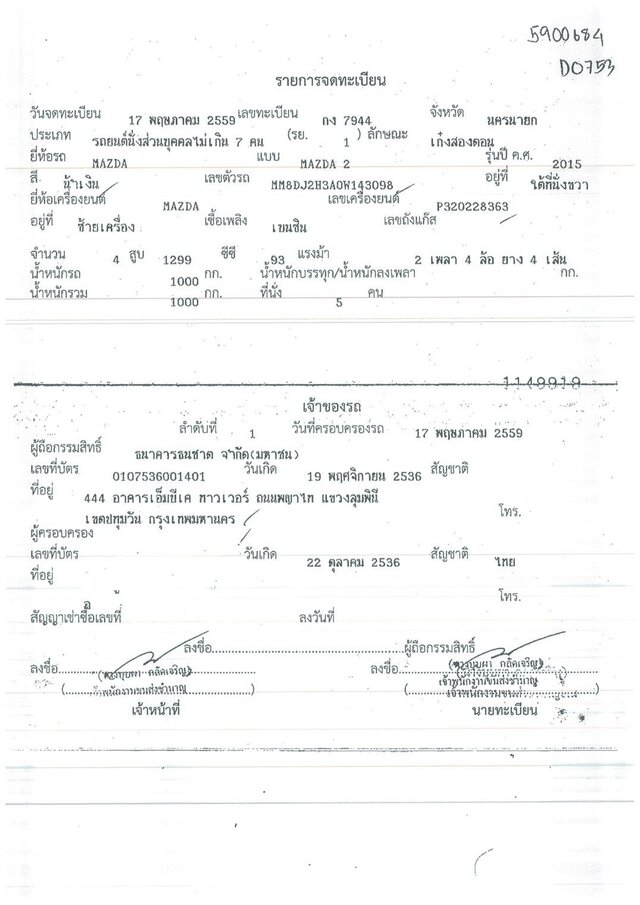 5900684
D0753
รายการจดทะเบียน
วันจดทะเบียน 17 พฤษภาคม 2559 เลขทะเบียน กง 7944 จังหวัด นครนายก
ประเภท รถยนต์นั่งส่วนบุคคลไม่เกิน 7 คน (รย. 1 ) ลักษณะ เก๋งสองตอน
ยี่ห้อรถ MAZDA แบบ MAZDA 2 รุ่นปี ค.ศ. 2015
สี น้ำเงิน เลขตัวรถ MM8DJ2H3A0W143098 อยู่ที่ ใต้ที่นั่งขวา
ยี่ห้อเครื่องยนต์ MAZDA เลขเครื่องยนต์ P320228363
อยู่ที่ ซ้ายเครื่อง เชื้อเพลิง เบนซิน เลขถังแก๊ส
จำนวน 4 สูบ 1299 ซีซี 93 แรงม้า 2 เพลา 4 ล้อ ยาง 4 เส้น
น้ำหนักรถ 1000 กก. น้ำหนักบรรทุก/น้ำหนักลงเพลา กก.
น้ำหนักรวม 1000 กก. ที่นั่ง 5 คน
1149919
เจ้าของรถ
ลำดับที่ 1 วันที่ครอบครองรถ 17 พฤษภาคม 2559
ผู้ถือกรรมสิทธิ์ ธนาคารธนชาต จำกัด(มหาชน)
เลขที่บัตร 0107536001401 วันเกิด 19 พฤศจิกายน 2536 สัญชาติ
ที่อยู่ 444 อาคารเอ็มบีเค ทาวเวอร์ ถนนพญาไท แขวงลุมพินี
เขตปทุมวัน กรุงเทพมหานคร โทร.
ผู้ครอบครอง
เลขที่บัตร วันเกิด 22 ตุลาคม 2536 สัญชาติ ไทย
ที่อยู่
โทร.
สัญญาเช่าซื้อเลขที่ ลงวันที่
ลงชื่อ ผู้ถือกรรมสิทธิ์
ลงชื่อ ลงชื่อ
เจ้าหน้าที่ นายทะเบียน